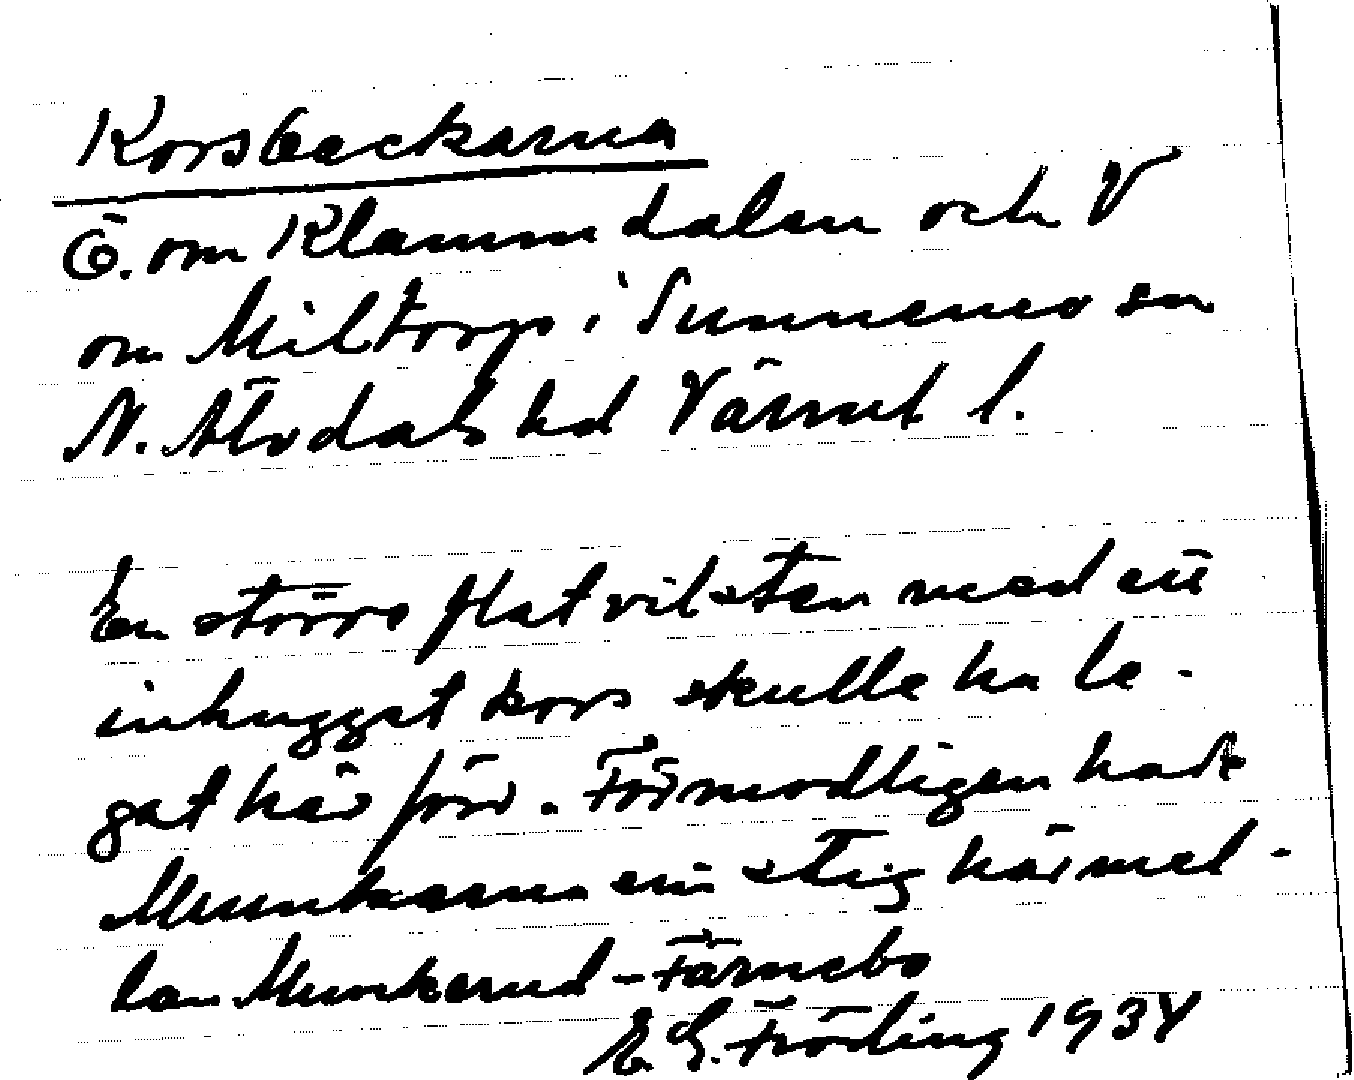 Korsbackarna
Ö. om Klammdalen och V
om Miltorp i Sunnemo sn
N. Älvdals hd Värml l.
En större flat vilsten med ett
inhugget kors skulle ha le-
gat här förr. Förmodligen hade
Munkarna sin stig här mel-
lan Munkerud - Färnebo
E. G. Fröding 1934